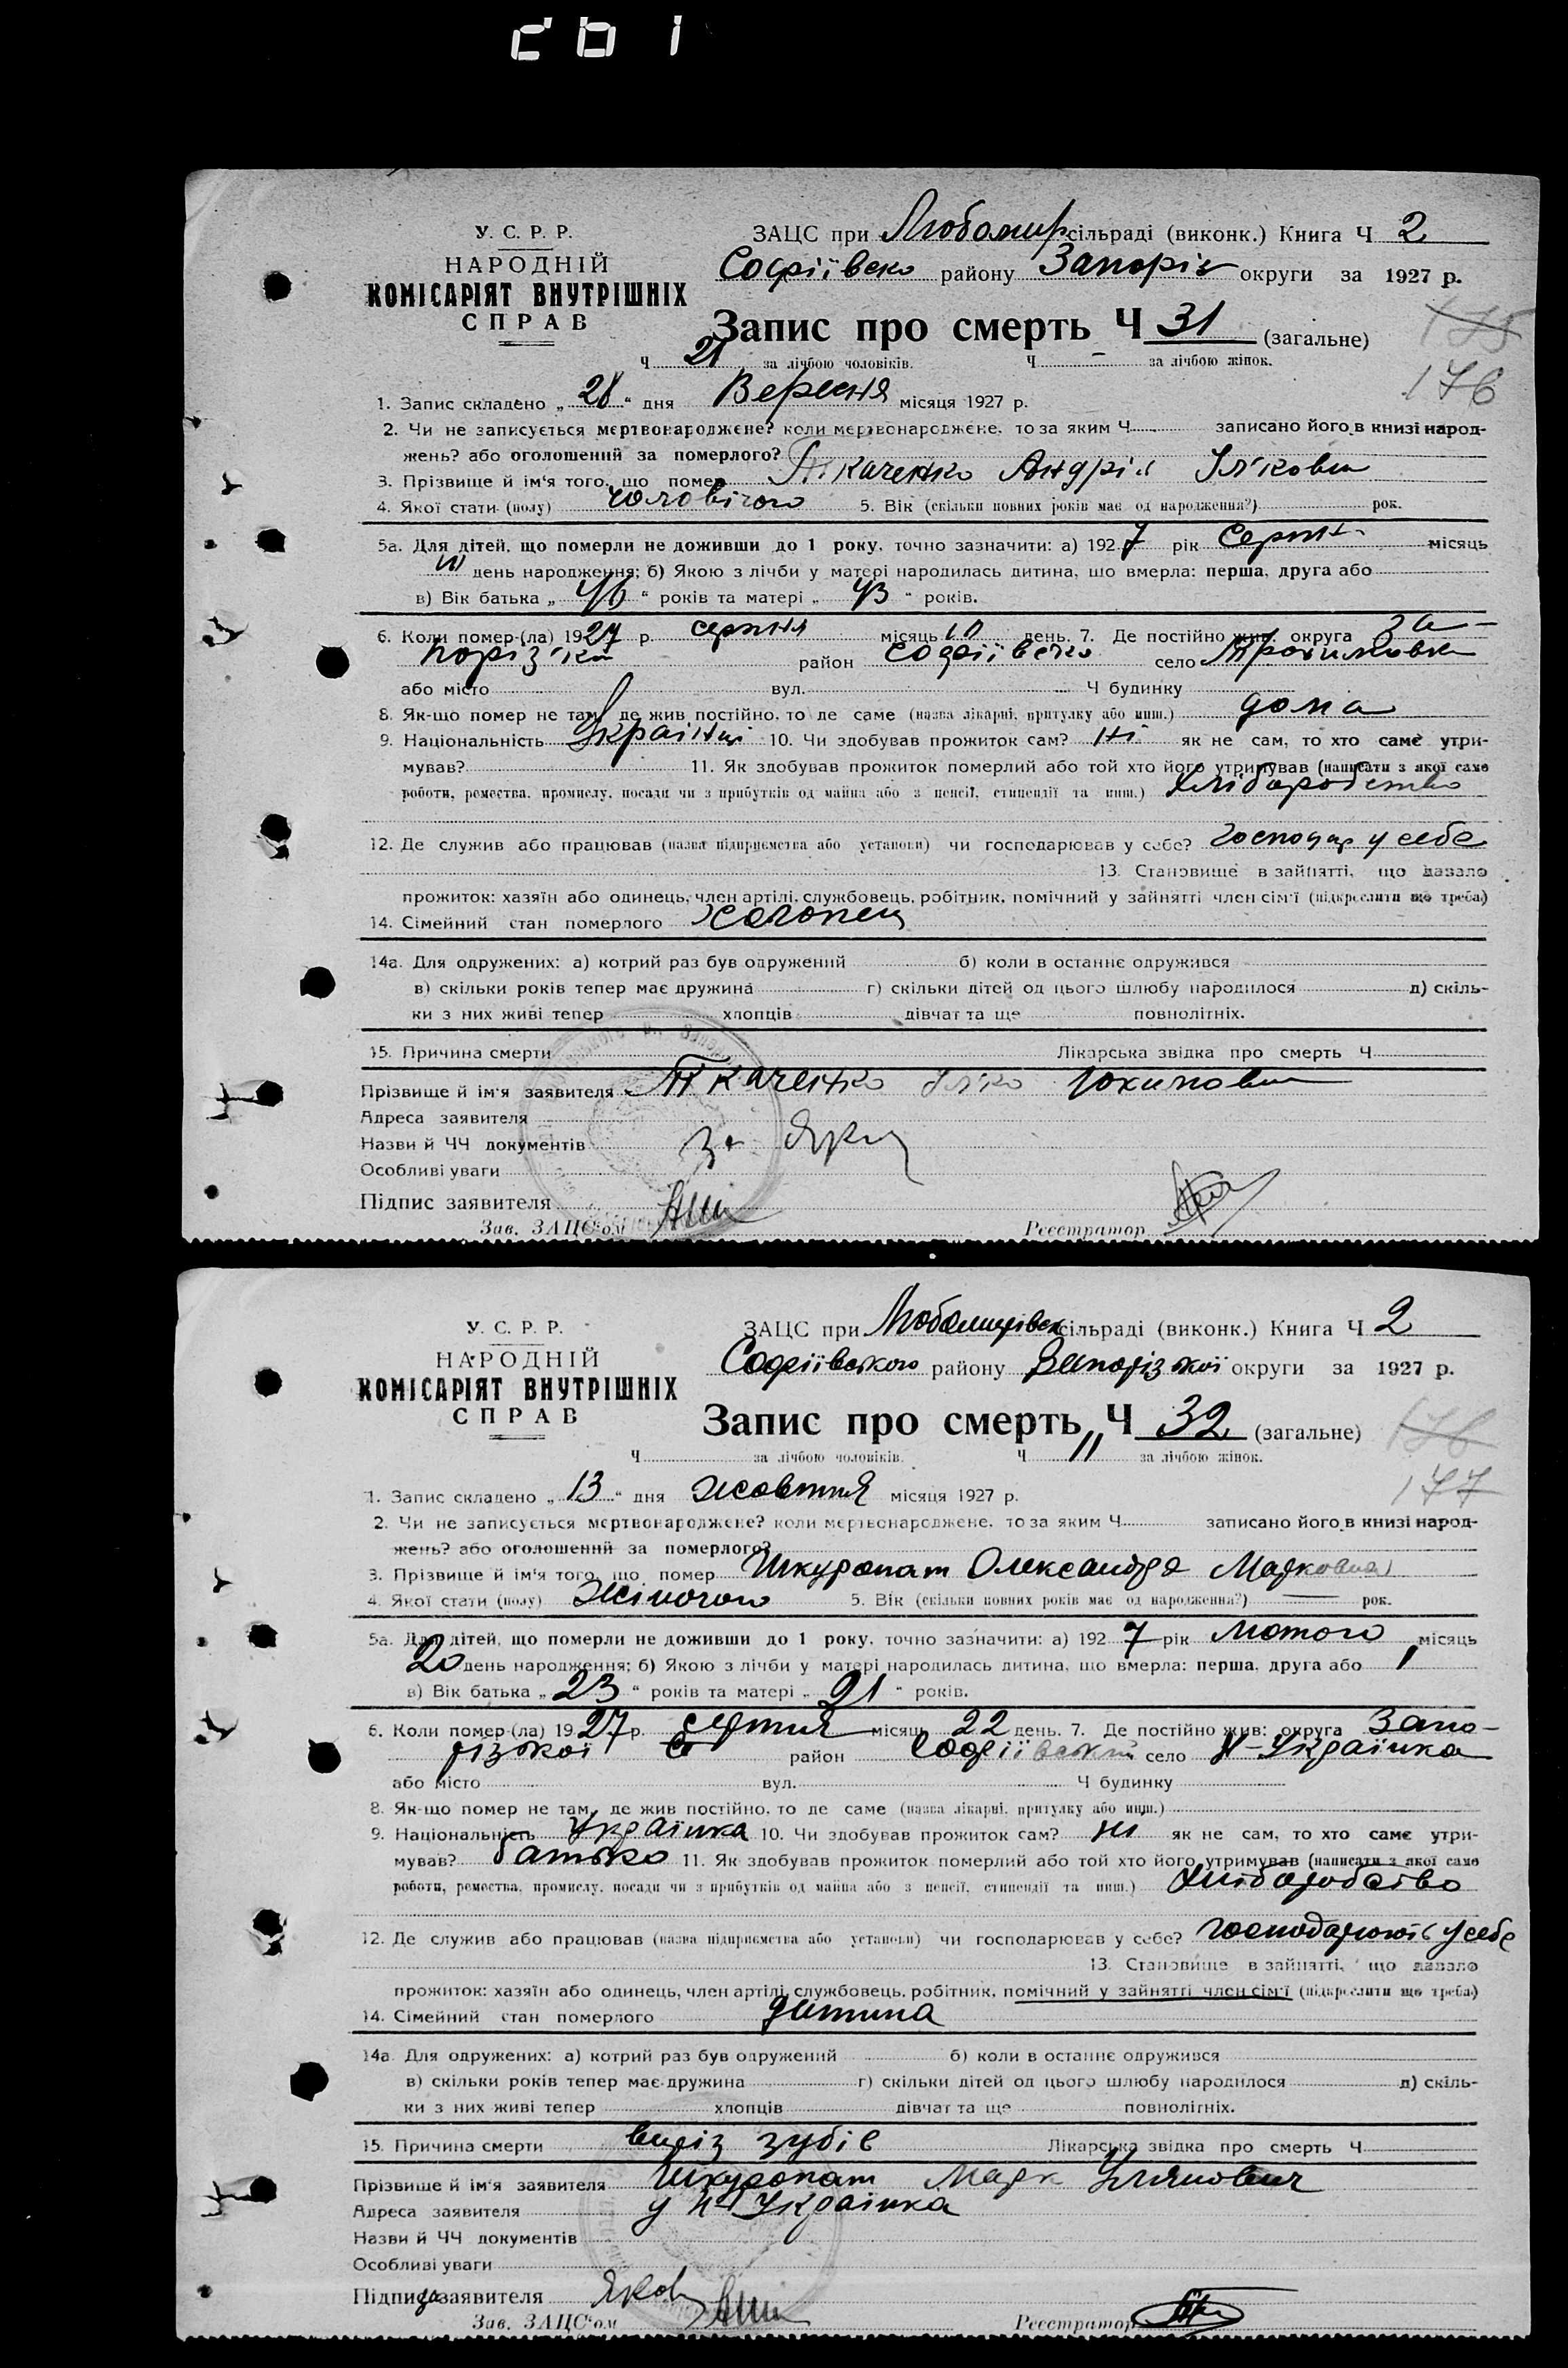 201
У. С. Р. Р.
НАРОДНІЙ
КОМІСАРІЯТ ВНУТРІШНІХ
СПРАВ
ЗАЦС при Любомир сільраді (виконк.) Книга Ч 2
Софіївсько району Запоріз округи за 1927 р.
Запис про смерть Ч 31 (загальне)
175
176
Ч 21 за лічбою чоловіків. Ч – за лічбою жінок.
1. Запис складено „ 28 “ дня Вересня місяця 1927 р.
2. Чи не записується мертвонароджене? коли мертвонароджене, то за яким Ч записано його в книзі народ-
жень? або оголошений за померлого?
3. Прізвище й ім‘я того, що помер Ткаченко Андрій Ількович
4. Якої стати (полу) чоловічого 5. Вік (скільки повних років має од народження?) рок.
5а. Для дітей, що померли не доживши до 1 року, точно зазначити: а) 1927 рік Серпн місяць
день народження; б) Якою з лічби у матері народилась дитина, що вмерла: перша, друга або
в) Вік батька „ 46 “ років та матері „ 43 “ років.
6. Коли помер-(ла) 1927 р. серпня місяць 10 день. 7. Де постійно жив: округа За-
поріз'ка район Софіївсько село Трохимовка
або місто вул. Ч будинку
8. Як-що помер не там, де жив постійно, то де саме (назва лікарні, притулку або инш.) дома
9. Національність Українці 10. Чи здобував прожиток сам? ні як не сам, то хто саме утри-
мував? 11. Як здобував прожиток померлий або той хто його утримував (написати з якої само
роботи, ремества, промислу, посади чи з прибутків од майна або з пенсії, стипендії та инш.) хліборобство
12. Де служив або працював (назва підприємства або установи) чи господарював у себе? господар у себе
13. Становище в зайнятті, що давало
прожиток: хазяїн або одинець, член артілі, службовець, робітник, помічний у зайнятті член сім'ї (підкреслити що треба)
14. Сімейний стан померлого Хлопець
14а. Для одружених: а) котрий раз був одружений б) коли в останнє одружився
в) скільки років тепер має дружина г) скільки дітей од цього шлюбу народилося д) скіль-
ки з них живі тепер хлопців дівчат та ще повнолітніх.
15. Причина смерти Лікарська звідка про смерть Ч
Прізвище й ім'я заявителя Ткаченко Ілько Юхимович
Адреса заявителя
Назви й ЧЧ документів
Особливі уваги
Підпис заявителя
Зав. ЗАЦС‘ом Реєстратор
У. С. Р. Р.
НАРОДНІЙ
КОМІСАРІЯТ ВНУТРІШНІХ
СПРАВ
ЗАЦС при Любомирівск сільраді (виконк.) Книга Ч 2
Софіївського району Запорізької округи за 1927 р.
Запис про смерть Ч 32 (загальне)
176
177
Ч за лічбою чоловіків. Ч 11 за лічбою жінок.
1. Запис складено „ 13 “ дня жовтня місяця 1927 р.
2. Чи не записується мертвонароджене? коли мертвонароджене, то за яким Ч записано його в книзі народ-
жень? або оголошений за померлого?
3. Прізвище й ім‘я того, що помер Шкуропат Олександра Марковна
4. Якої стати (полу) Жіночого 5. Вік (скільки повних років має од народження?) — рок.
5а. Для дітей, що померли не доживши до 1 року, точно зазначити: а) 1927 рік Лютого місяць
20 день народження; б) Якою з лічби у матері народилась дитина, що вмерла: перша, друга або 1
в) Вік батька „ 23 “ років та матері „ 21 “ років.
6. Коли помер-(ла) 1927 р. серпня місяць 22 день. 7. Де постійно жив: округа Запо-
різької район Софіївський село Н-Українка
або місто вул. Ч будинку
8. Як-що помер не там, де жив постійно, то де саме (назва лікарні, притулку або инш.)
9. Національність Українка 10. Чи здобував прожиток сам? ні як не сам, то хто саме утри-
мував? батько 11. Як здобував прожиток померлий або той хто його утримував (написати з якої само
роботи, ремества, промислу, посади чи з прибутків од майна або з пенсії, стипендії та инш.) хліборобство
12. Де служив або працював (назва підприємства або установи) чи господарював у себе? господарюють у себе
13. Становище в зайнятті, що давало
прожиток: хазяїн або одинець, член артілі, службовець, робітник, помічний у зайнятті член сім'ї (підкреслити що треба)
14. Сімейний стан померлого дитина
14а. Для одружених: а) котрий раз був одружений б) коли в останнє одружився
в) скільки років тепер має дружина г) скільки дітей од цього шлюбу народилося д) скіль-
ки з них живі тепер хлопців дівчат та ще повнолітніх.
15. Причина смерти виріз зубів Лікарська звідка про смерть Ч
Прізвище й ім'я заявителя Шкуропат Марк Улянович
Адреса заявителя у Н-Українка
Назви й ЧЧ документів
Особливі уваги
Підпис за заявителя
Зав. ЗАЦС‘ом Реєстратор